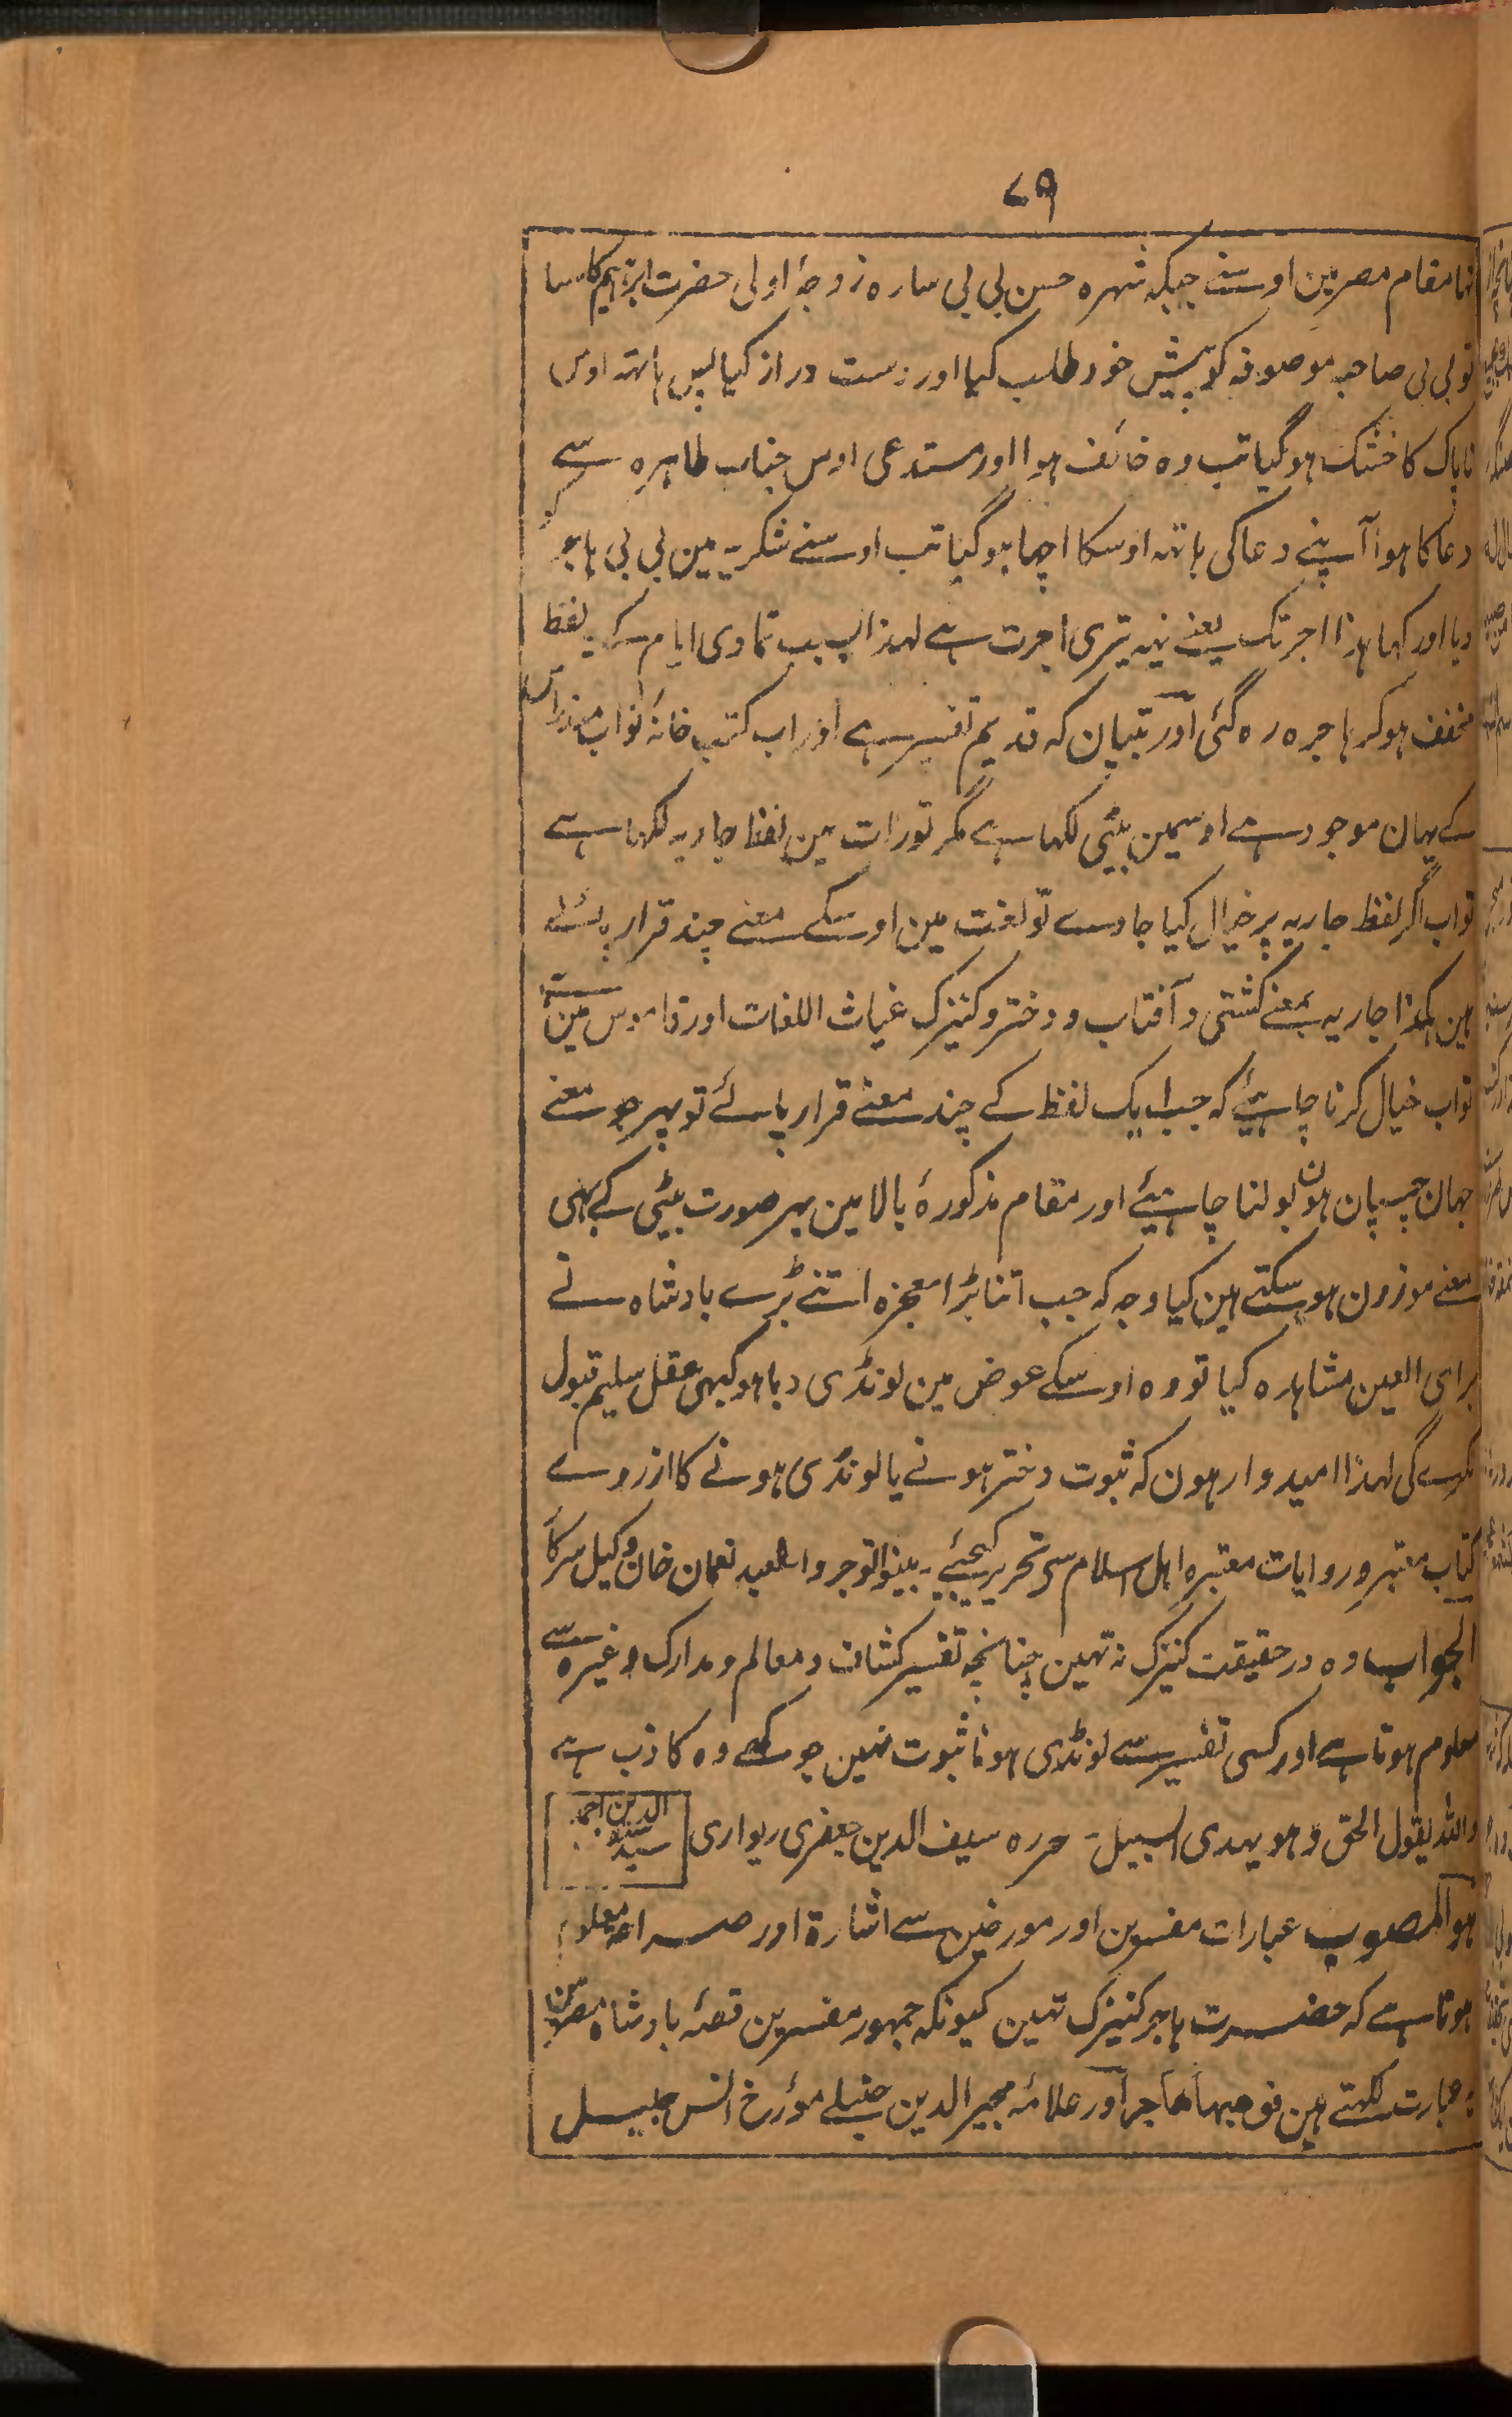 ۷۹
تہا مقام مصر مین اوسنے جبکہ شہرہ حسن بی بی سارہ زوجۂ اولی حضرت ابراہیم کا سنا
تو بی بی صاحبہ موصوفہ کو پیش خود طلب کیا اور دست دراز کیا پس ہاتہہ اوس
ناپاک کا خشک ہوگیا تب وہ خائف ہوا اور مستدعی اوس جناب طاہرہ سے
دعا کا ہوا آپنے دعا کی ہاتہہ اوسکا اچہا ہوگیا تب اوسنے شکریہ مین بی بی ہاجر کو
دیا اور کہا ہذا اجرتک یعنے یہہ تیری اجرت ہے لہذا بسبب تمادی ایام کے یہ لفظ
مخفف ہوکر ہاجرہ رہ گئی اور تبیان کہ قدیم تفسیر ہے اور اب کتب خانۂ نواب مندراس
کے یہان موجود ہے اوسمین بیٹی لکہا ہے مگر تورات مین لفظ جاریہ لکہا ہے
تو اب اگر لفظ جاریہ پر خیال کیا جاوے تو لغت مین اوسکے معنے چند قرار پائے
ہین ہکذا جاریہ بمعنے کشتی و آفتاب و دختر و کنیزک غیاث اللغات اور قاموس مین ہے
تو اب خیال کرنا چاہیئے کہ جب ایک لفظ کے چند معنے قرار پائے تو پہر جو معنے
جہان چسپان ہون بولنا چاہیئے اور مقام مذکورۂ بالا مین بہر صورت بیٹی کے ہی
معنے موزون ہو سکتے ہین کیا وجہ کہ جب اتنا بڑا معجزہ اتنے بڑے بادشاہ نے
برای العین مشاہدہ کیا تو وہ اوسکے عوض مین لونڈی دیا ہو کبہی عقل سلیم قبول
نکرے گی لہذا امیدوار ہون کہ ثبوت دختر ہونے یا لونڈی ہونے کا از روے
کتاب معتبر و روایات معتبرہ اہل اسلام سی تحریر کیجیئے۔ بینوا توجروا العبد نعمان خان وکیل سرکار
الجواب وہ درحقیقت کنیزک نہ تہین چنانچہ تفسیر کشاف و معالم و مدارک وغیرہ سے
معلوم ہوتا ہے اور کسی تفسیر سے لونڈی ہونا ثبوت نہین جو کہے وہ کاذب ہے
واللہ یقول الحق وہو یہدی السبیل۔ حررہ سیف الدین جعفری ریواری
ہو المصوب عبارات مفسرین اور مورخین سے اشارۃ اور صراحۃ معلوم
ہوتا ہے کہ حضرت ہاجر کنیزک تہین کیونکہ جمہور مفسرین قصۂ بادشاہ مصر مین
یہ عبارت لکہتے ہین فوہبہا ہاجر اور علامۂ مجیر الدین حنبلے مؤرخ انس جلیل